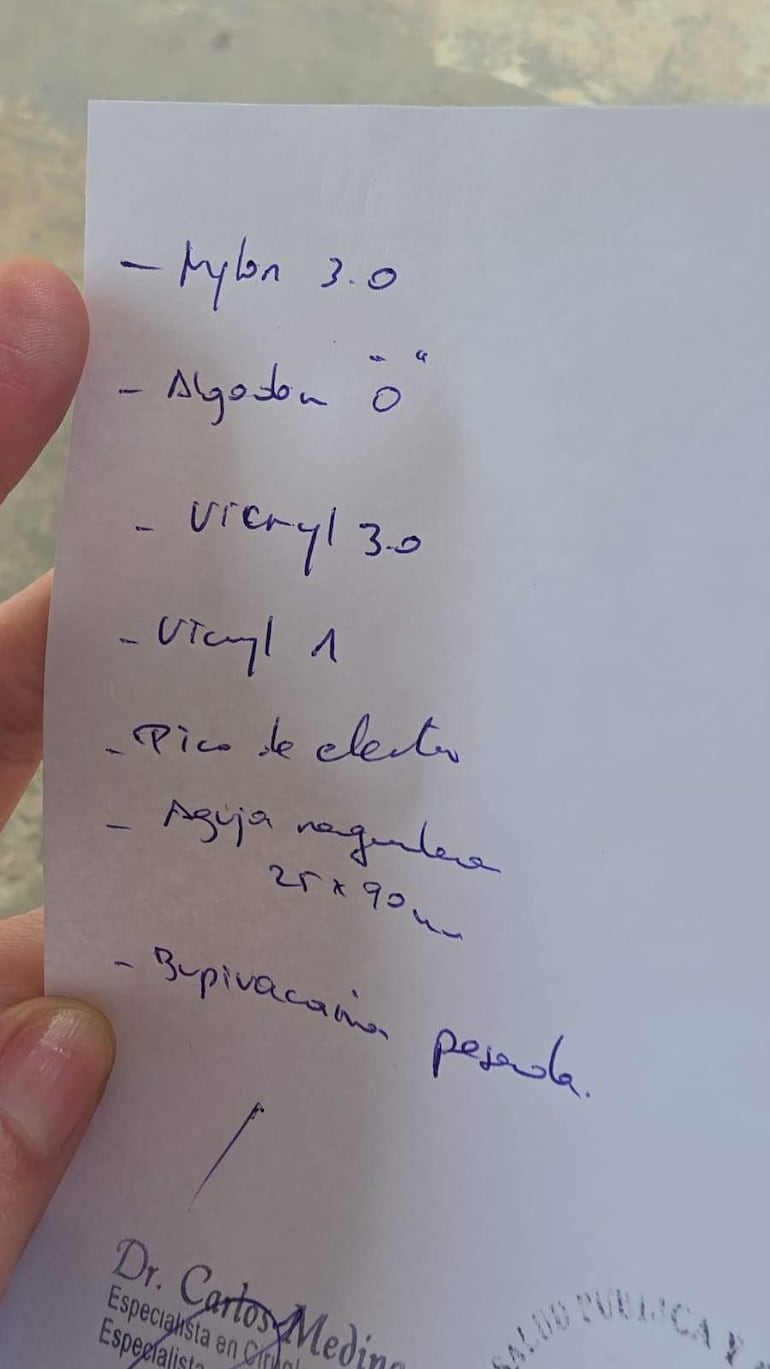 - Nylon 3.0
- Algodon "0"
- Vicryl 3.0
- Vicryl 1
- Pico de electro
- Aguja raquidea
25 x 90 mm
- Bupivacaina pesada.
Dr. Carlos Medina
Especialista en Cirugí
Especialista
SALUD PUBLICA Y